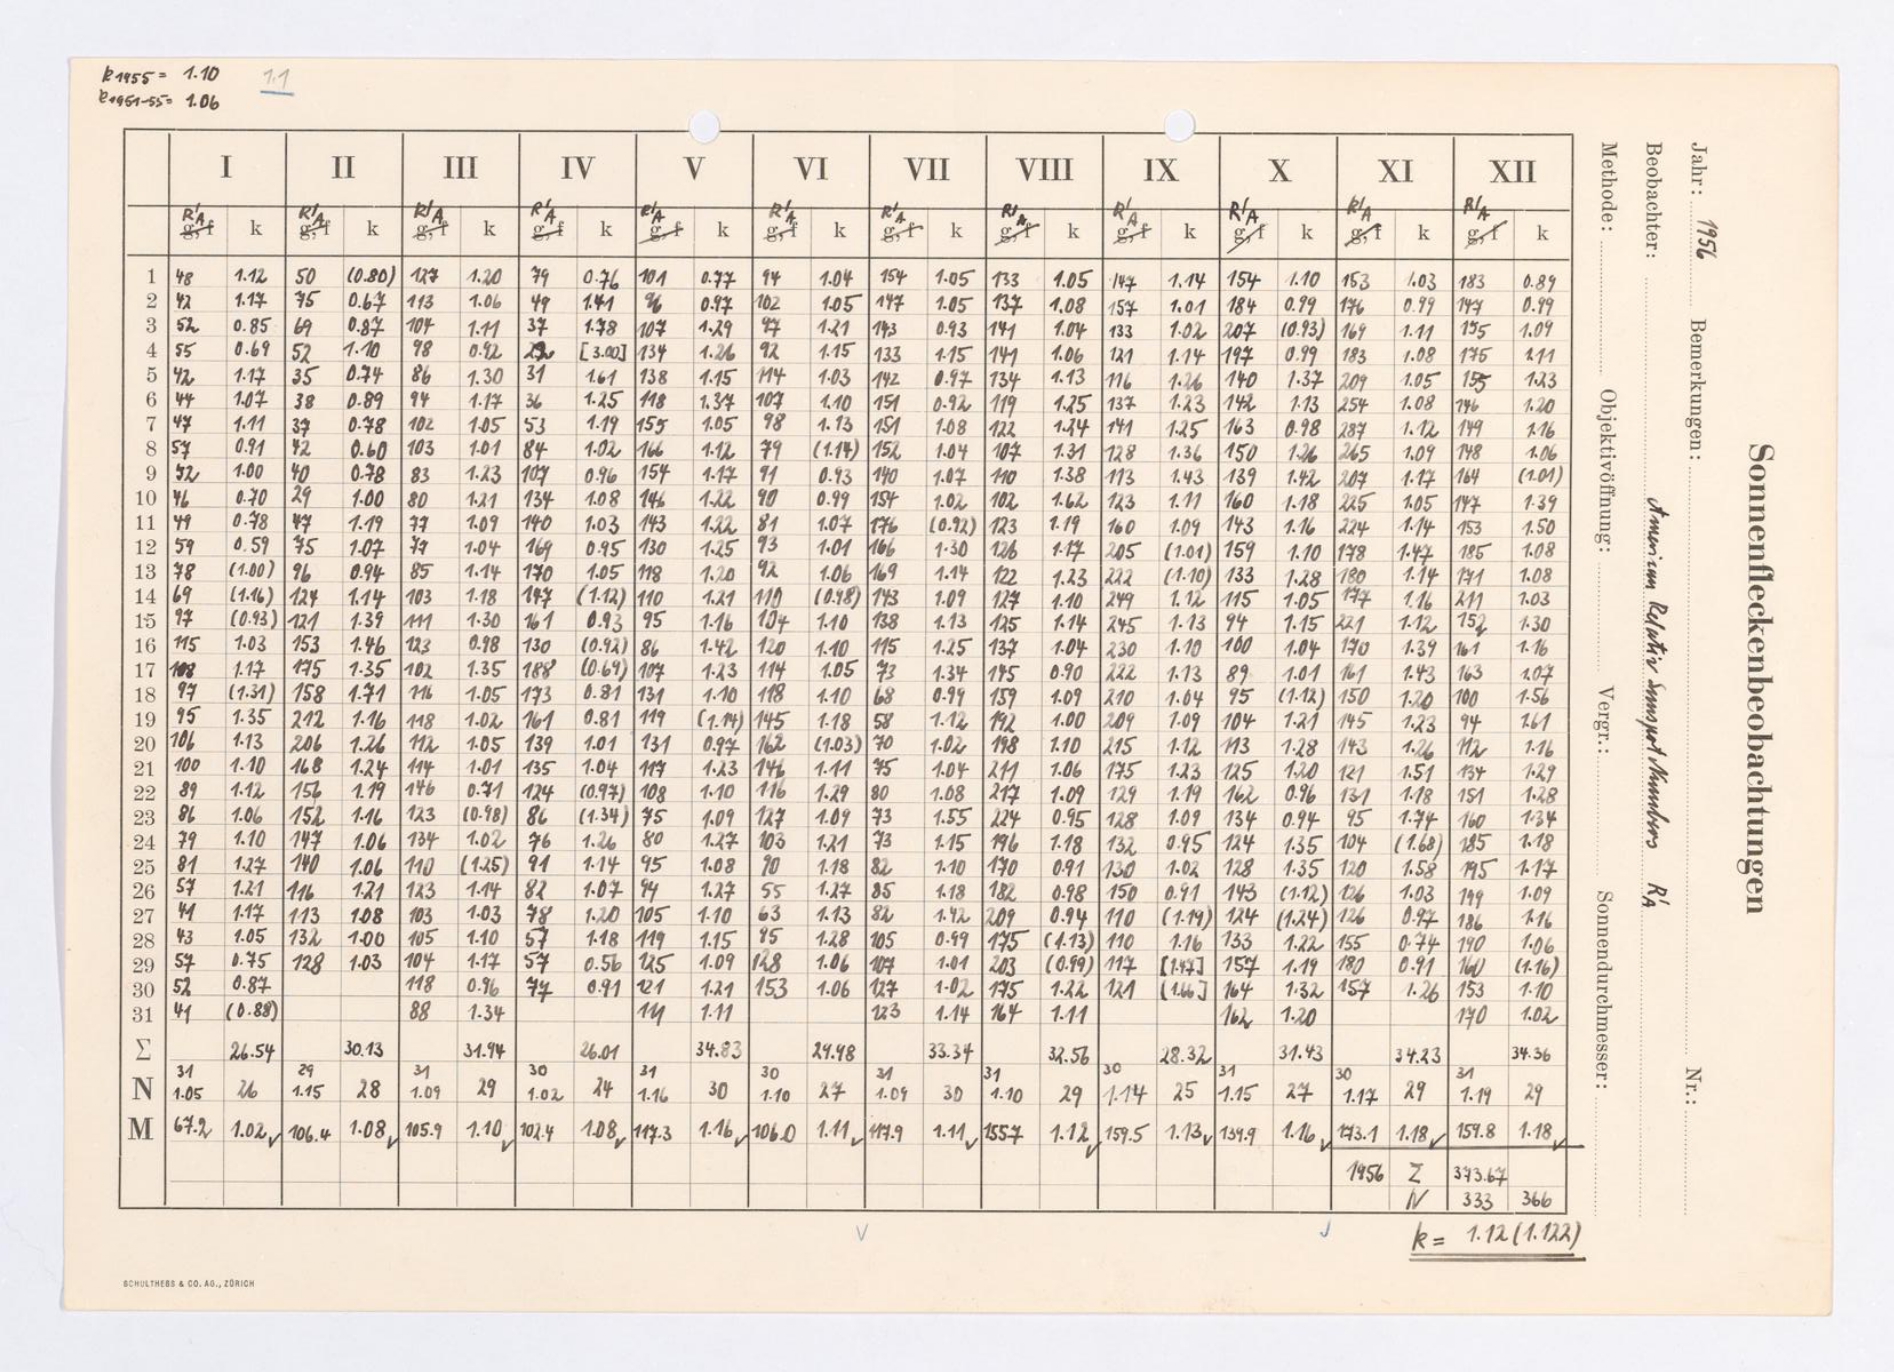 k1955 = 1.10 1.1
k1951-55 = 1.06
I II III IV V VI VII VIII IX X XI XII
R'A R'A R'A R'A R'A R'A R'A R'A R'A R'A R'A R'A
g, f k g, f k g, f k g, f k g, f k g, f k g, f k g, f k g, f k g, f k g, f k g, f k
1 48 1.12 50 (0.80) 127 1.20 79 0.76 101 0.77 94 1.04 154 1.05 133 1.05 147 1.14 154 1.10 153 1.03 183 0.89
2 42 1.17 75 0.67 113 1.06 49 1.41 96 0.97 102 1.05 147 1.05 137 1.08 157 1.01 184 0.99 176 0.99 147 0.99
3 52 0.85 69 0.87 104 1.11 37 1.78 107 1.29 97 1.21 143 0.93 141 1.04 133 1.02 207 (0.93) 169 1.11 155 1.09
4 55 0.69 52 1.10 98 0.92 [3.00] 134 1.26 92 1.15 133 1.15 141 1.06 121 1.14 197 0.99 183 1.08 175 1.11
5 42 1.17 35 0.74 86 1.30 31 1.61 138 1.15 114 1.03 142 0.97 134 1.13 116 1.26 140 1.37 209 1.05 155 1.23
6 44 1.07 38 0.89 94 1.17 36 1.25 118 1.37 107 1.10 151 0.92 119 1.25 137 1.23 142 1.13 254 1.08 146 1.20
7 47 1.11 37 0.78 102 1.05 53 1.19 155 1.05 98 1.13 151 1.08 122 1.24 141 1.25 163 0.98 287 1.12 149 1.16
8 57 0.91 42 0.60 103 1.01 84 1.02 166 1.12 79 (1.14) 152 1.04 107 1.31 128 1.36 150 1.26 265 1.09 148 1.06
9 52 1.00 40 0.78 83 1.23 107 0.96 154 1.17 91 0.93 140 1.07 110 1.38 113 1.43 139 1.42 207 1.17 164 (1.01)
10 46 0.70 29 1.00 80 1.21 134 1.08 146 1.22 90 0.99 154 1.02 102 1.62 123 1.11 160 1.18 225 1.05 147 1.39
11 49 0.78 47 1.19 77 1.09 140 1.03 143 1.22 81 1.07 176 (0.92) 123 1.19 160 1.09 143 1.16 224 1.14 153 1.50
12 59 0.59 75 1.07 77 1.04 169 0.95 130 1.25 93 1.01 166 1.30 126 1.17 205 (1.01) 159 1.10 178 1.47 185 1.08
13 78 (1.00) 96 0.94 85 1.14 170 1.05 118 1.20 92 1.06 169 1.14 122 1.23 222 (1.10) 133 1.28 180 1.14 171 1.08
14 69 (1.16) 124 1.14 103 1.18 147 (1.12) 110 1.21 110 (0.98) 143 1.09 127 1.10 249 1.12 115 1.05 177 1.16 211 1.03
15 97 (0.93) 121 1.39 111 1.30 161 0.93 95 1.16 104 1.10 138 1.13 125 1.14 245 1.13 94 1.15 221 1.12 152 1.30
16 115 1.03 153 1.46 123 0.98 130 (0.92) 86 1.42 120 1.10 115 1.25 137 1.04 230 1.10 100 1.04 170 1.39 161 1.16
17 108 1.17 175 1.35 102 1.35 188 (0.69) 107 1.23 114 1.05 73 1.34 145 0.90 222 1.13 89 1.01 161 1.43 163 1.07
18 97 (1.31) 158 1.71 116 1.05 173 0.81 131 1.10 118 1.10 68 0.99 159 1.09 210 1.04 95 (1.12) 150 1.20 100 1.56
19 95 1.35 212 1.16 118 1.02 161 0.81 119 (1.14) 145 1.18 58 1.12 192 1.00 209 1.09 104 1.21 145 1.23 94 1.61
20 106 1.13 206 1.26 112 1.05 139 1.01 131 0.97 162 (1.03) 70 1.02 198 1.10 215 1.12 113 1.28 143 1.26 112 1.16
21 100 1.10 168 1.24 114 1.01 135 1.04 117 1.23 146 1.11 75 1.04 211 1.06 175 1.23 125 1.20 121 1.51 134 1.29
22 89 1.12 156 1.19 146 0.71 124 (0.97) 108 1.10 116 1.29 80 1.08 217 1.09 129 1.19 162 0.96 131 1.18 151 1.28
23 86 1.06 152 1.16 123 (0.98) 86 (1.34) 75 1.09 127 1.09 73 1.55 224 0.95 128 1.09 134 0.94 95 1.74 160 1.34
24 79 1.10 147 1.06 134 1.02 76 1.26 80 1.27 103 1.21 73 1.15 196 1.18 132 0.95 124 1.35 104 (1.68) 185 1.18
25 81 1.27 140 1.06 110 (1.25) 91 1.14 95 1.08 90 1.18 82 1.10 170 0.91 130 1.02 128 1.35 120 1.58 195 1.17
26 57 1.21 116 1.21 123 1.14 82 1.07 94 1.27 55 1.27 85 1.18 182 0.98 150 0.91 143 (1.12) 126 1.03 199 1.09
27 41 1.17 113 1.08 103 1.03 78 1.20 105 1.10 63 1.13 82 1.42 209 0.94 110 (1.19) 124 (1.24) 126 0.97 186 1.16
28 43 1.05 132 1.00 105 1.10 57 1.18 119 1.15 95 1.28 105 0.99 175 (1.13) 110 1.16 133 1.22 155 0.74 190 1.06
29 57 0.75 128 1.03 104 1.17 57 0.56 125 1.09 128 1.06 107 1.01 203 (0.99) 117 [1.47] 157 1.19 180 0.91 160 (1.16)
30 52 0.87 118 0.96 77 0.91 121 1.21 153 1.06 127 1.02 175 1.22 121 [1.66] 164 1.32 157 1.26 153 1.10
31 41 (0.88) 88 1.34 111 1.11 123 1.14 164 1.11 162 1.20 170 1.02
Σ 26.54 30.13 31.94 26.01 34.83 29.98 33.34 32.56 28.32 31.43 34.23 34.36
31 29 31 30 31 30 31 31 30 31 30 31
N 1.05 26 1.15 28 1.09 29 1.02 24 1.16 30 1.10 27 1.09 30 1.10 29 1.14 25 1.15 27 1.17 29 1.19 29
M 67.2 1.02 106.4 1.08 105.9 1.10 102.4 1.08 117.3 1.16 106.0 1.11 117.9 1.11 155.7 1.12 159.5 1.13 139.9 1.16 173.1 1.18 159.8 1.18
1956 Σ 373.67
N 333 366
k = 1.12 (1.122)
SCHULTHESS & CO. AG., ZÜRICH
Sonnenfleckenbeobachtungen
Jahr: 1956 Bemerkungen: Nr.:
Beobachter: American Relativ Sunspot Numbers R'A
Methode: Objektivöffnung: Vergr.: Sonnendurchmesser: